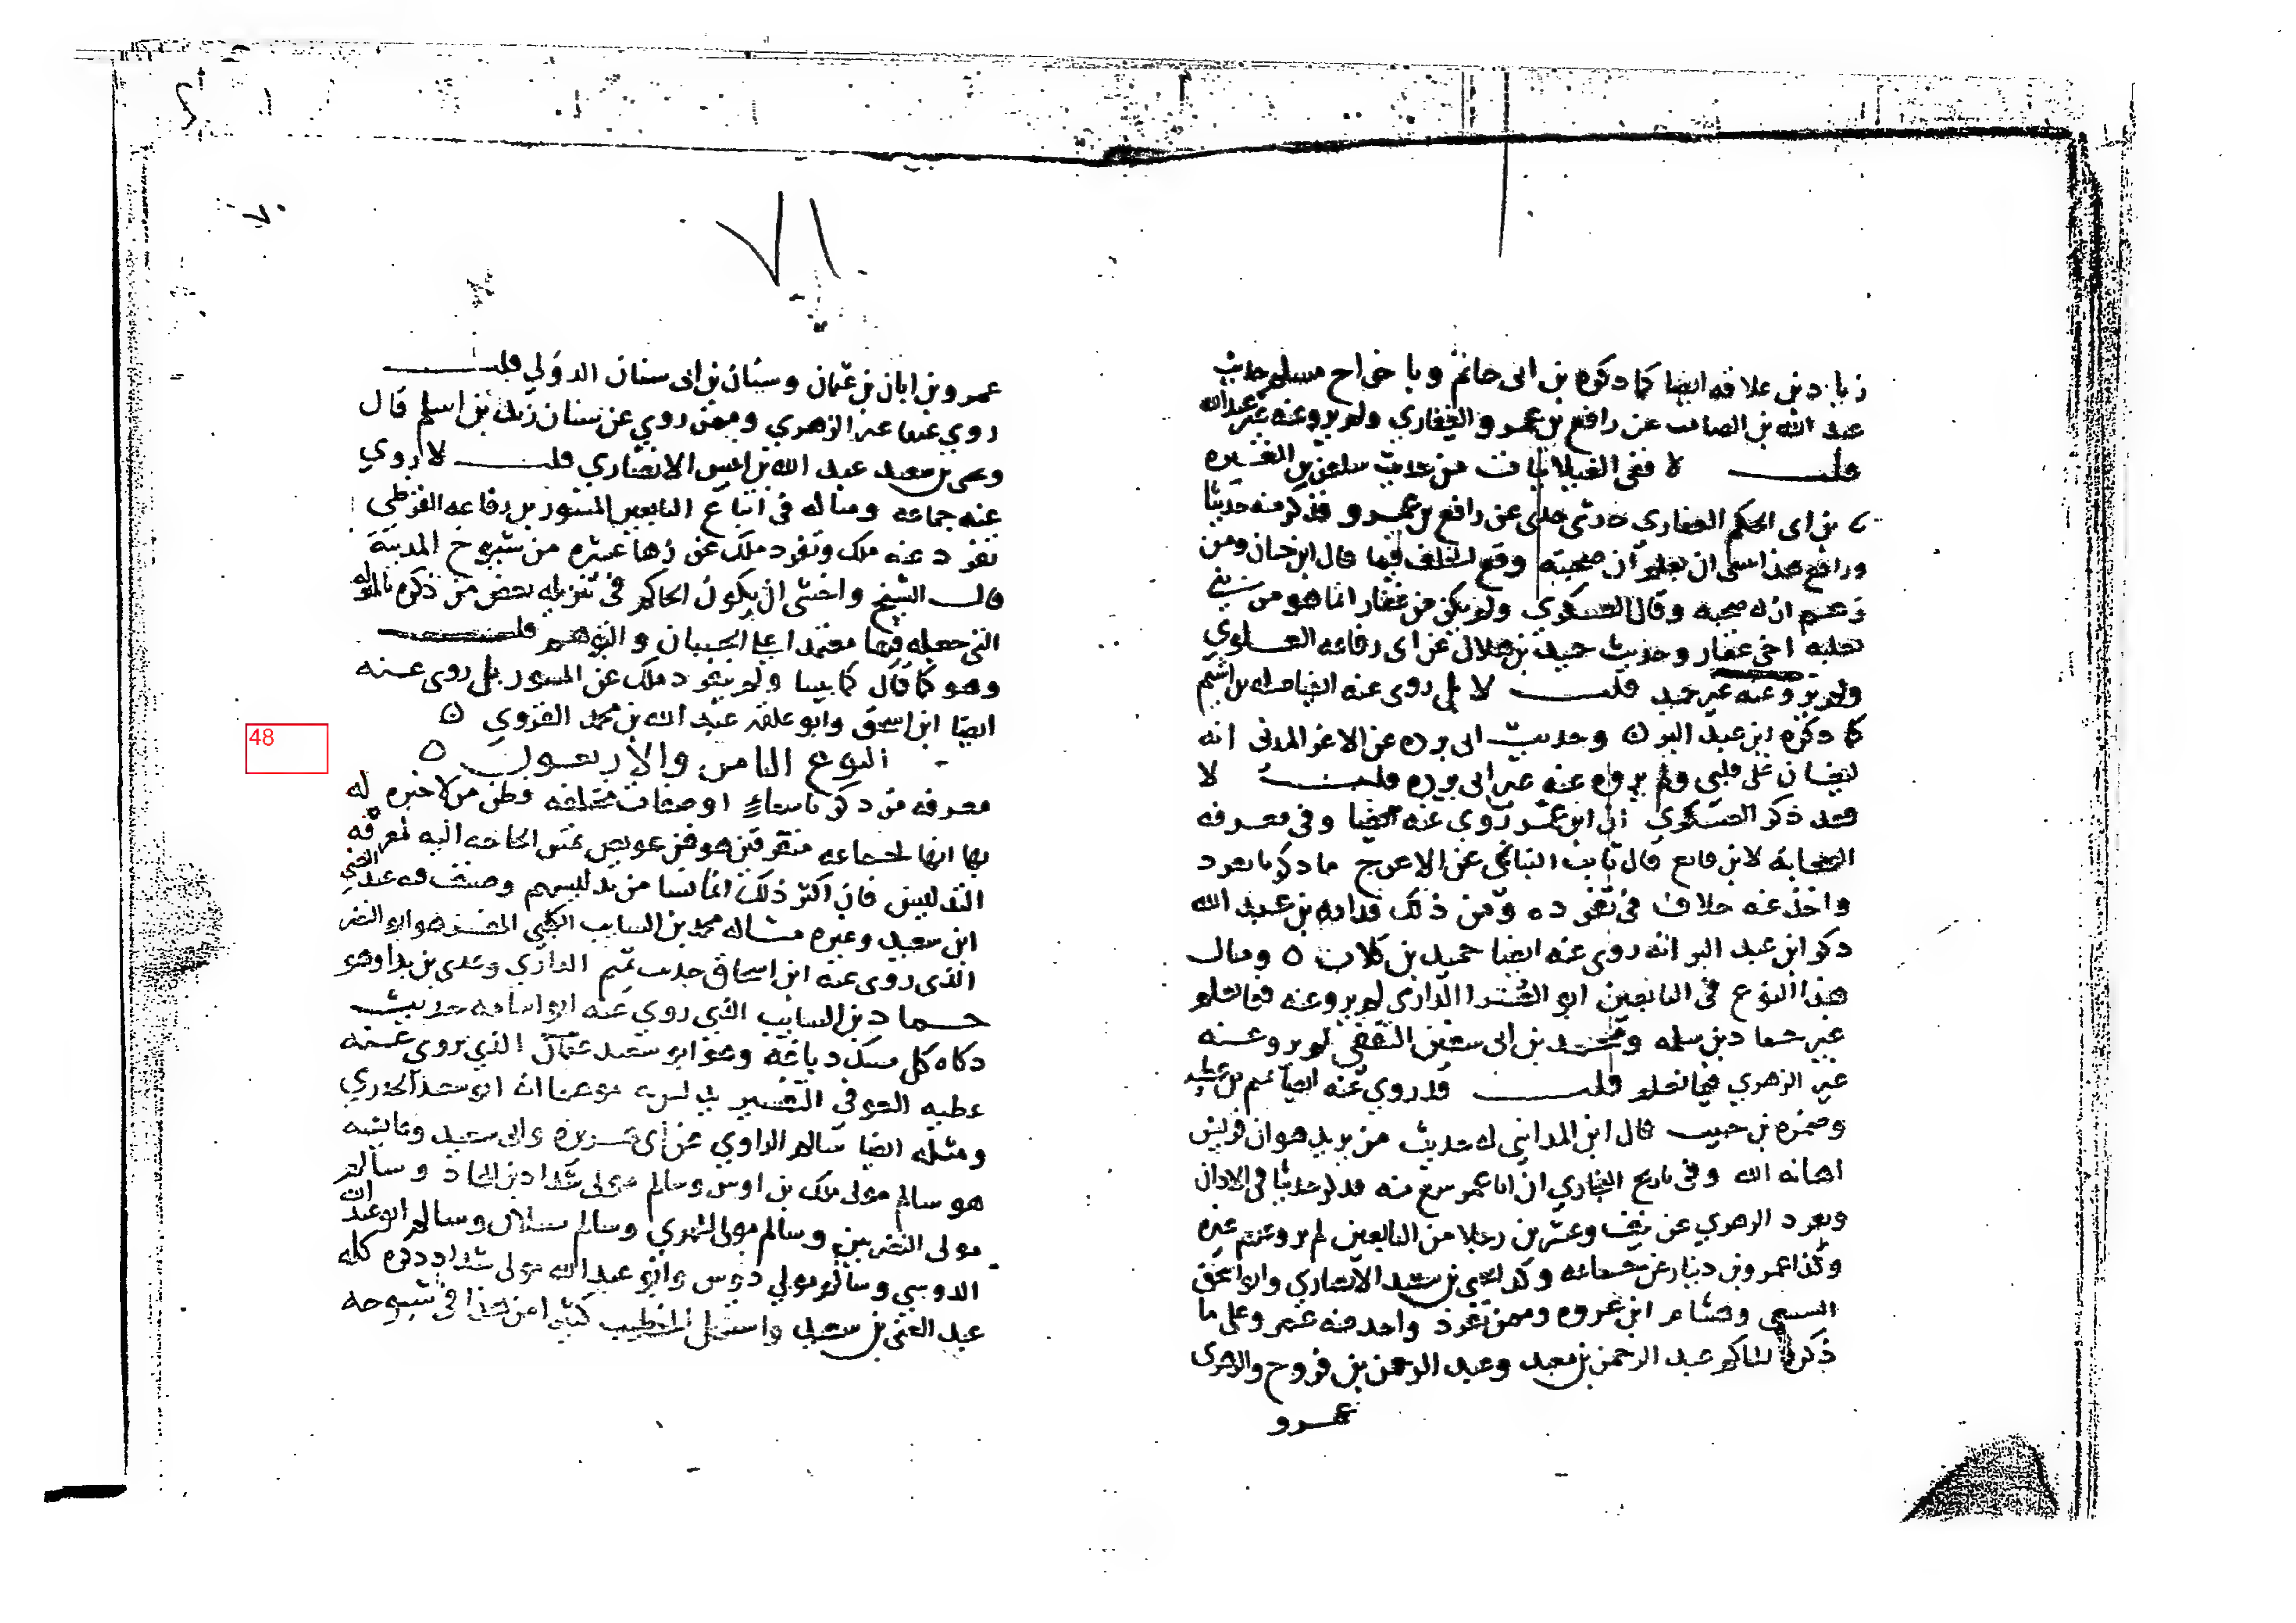 ٧١
زياد بن علاقه ايضا كما ذكره بن ابي حاتم وباخراج مسلم حديث
عبد الله بن الصامت عن رافع بن عمرو الغفاري ولم يرو عنه غير عبد الله
قلت لا ففي الغيلانيات من حديث سلمن بن المغيره
بن ابي الحكم الغفاري حدثني جدي عن رافع بن عمرو فذكر منه حديثا
ورافع هذا ان صحبته وقع الخلف فيها قال ابن حبان ومن
زعم ان له صحبه وقال العسكري ولم يكن من غفار انما هو من بني
ثعلبه اخي غفار وحديث حميد بن هلال عن ابي رفاعه العدوي
ولم يرو عنه غير حميد قلت لا بلى روى عنه ايضا صله بن اشيم
كما ذكره ابن عبد البر ٥ وحديث ابي برده عن الاغر المزني انه
ليغان على قلبي ولم يروه عنه غير ابي برده قلت لا
فقد ذكر العسكري ان ابن عمر روى عنه ايضا وفي معرفه
الصحابة لابن قانع قال ثابت البناني عن الاغر
خلاف في تفرده ومن ذلك قدامه بن عبد الله
ذكر ابن عبد البر انه روى عنه ايضا حميد بن كلاب ٥ ومثال
هذا النوع في التابعين ابو العشرا الدارمي لم يرو عنه فيما نعلم
غير حماد بن سلمه ومحمد بن ابي سفين الثقفي لم يرو عنه
غير الزهري فيما نعلم قلت قد روي عنه ايضا
وضمره بن حبيب قال ابن المديني له حديث من يريد هوان قريش
اهانه الله وفي تاريخ البخاري ان ابا عمر سمع منه
وتفرد الزهري عن نيف وعشرين رجلا من التابعين لم يرو عنهم غيره
وكذا عمرو بن دينار عن جماعه وكذا يحيى بن سعيد الانصاري وابو اسحق
السبيعي وهشام ابن عروه وممن تفرد واحد منه عمر وعلى ما
ذكره الحاكم عبد الرحمن بن معبد وعبد الرحمن بن فروخ والزهري
عمرو
عمرو بن ابان بن عثمان وسنان بن ابي سنان الدؤلي قلت
روي عنهما غير الزهري وممن روي عن سنان زيد بن اسلم قال
ويحيى بن سعيد عبد الله بن انيس الانصاري قلت لا روي
عنه جماعه ومثاله في اتباع التابعين المسور بن رفاعه القرظي
تفرد عنه ملك وتفرد ملك عن زها عشره من شيوخ المدينة
قال الشيخ واخشى ان يكون الحاكم في تنزيله بعض من ذكره بالمنزله
التي جعله فيها معتمدا على الحسبان والتوهم قلت
وهو كما قال كما بينا ولم ينفرد ملك عن المسور بل روى عنه
ايضا ابن اسحق وابو علقمه عبد الله بن محمد الفروي ٥
48
النوع الثامن والاربعون ٥
معرفه من ذكر باسماء او صفات مختلفه فظن من لا خبره له
بها انها لجماعه متفرقين هو فن عويص تمس الحاجه اليه لمعرفه
التدليس فان اكثر ذلك انما نشا من تدليسهم وصنف فيه عبد الغني
ابن سعيد وغيره مثاله محمد بن السايب الكلبي المفسر هو ابو النضر
الذي روى عنه ابن اسحاق حديث تميم الداري وعدي بن بدا وهو
حماد بن السايب الذي روي عنه ابو اسامه حديث
ذكاه كل مسك دباغه وهو ابو سعيد الذي يروي عنه
عطيه العوفي التفسير يدلس به موهما انه ابو سعيد الخدري
ومثله ايضا سالم الراوي عن ابي هريره وابي سعيد وعايشه
هو سالم مولى ملك بن اوس وسالم مولى شداد بن الهاد وسالم
مولى النصريين وسالم مولى المهري وسالم سبلان وسالم ابو عبد الله
الدوسي وسالم مولي دوس وابو عبد الله مولى شداد ذكره كله
عبد الغني بن سعيد واستعمل الخطيب كثيرا من هذا في شيوخه